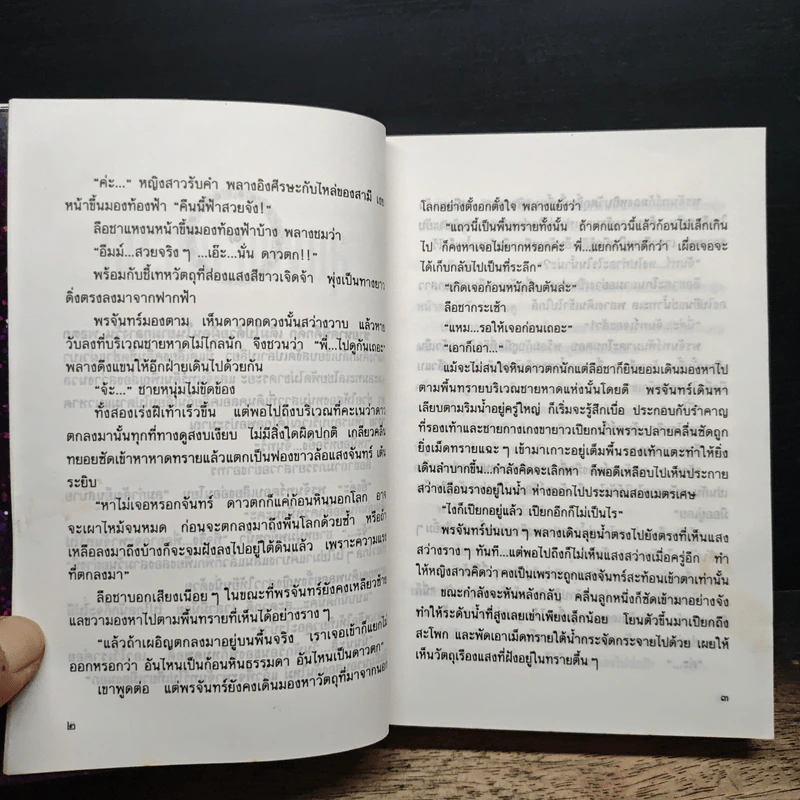 "ค่ะ..." หญิงสาวรับคำ พลางอิงศีรษะกับไหล่ของสามี
หน้าขึ้นมองท้องฟ้า "คืนนี้ฟ้าสวยจัง!"
ลือชาแหงนหน้าขึ้นมองท้องฟ้าบ้าง พลางชมว่า
"อืมม์...สวยจริงๆ ...เอ๊ะ...นั่น ดาวตก!!"
พร้อมกับชี้เทหวัตถุที่ส่องแสงสีขาวเจิดจ้า พุ่งเป็นทางยาว
ดิ่งตรงลงมาจากฟากฟ้า
พรจันทร์มองตาม เห็นดาวตกดวงนั้นสว่างวาบ แล้วหาย
วับลงที่บริเวณชายหาดไม่ไกลนัก จึงชวนว่า "พี่...ไปดูกันเถอะ"
พลางดึงแขนให้อีกฝ่ายเดินไปด้วยกัน
"จ้ะ..." ชายหนุ่มไม่ขัดข้อง
ทั้งสองเร่งฝีเท้าเร็วขึ้น แต่พอไปถึงบริเวณที่คะเนว่าดาว
ตกลงมานั้นทุกที่ทางดูสงบเงียบ ไม่มีสิ่งใดผิดปกติ เกลียวคลื่น
ทยอยซัดเข้าหาหาดทรายแล้วแตกเป็นฟองขาวล้อแสงจันทร์ เต้น
ระยิบ
"หาไม่เจอหรอกจันทร์ ดาวตกก็แค่ก้อนหินนอกโลก อาจ
จะเผาไหม้จนหมด ก่อนจะตกลงมาถึงพื้นโลกด้วยซ้ำ หรือถ้า
เหลือลงมาถึงบ้างก็จะจมฝังลงไปอยู่ใต้ดินแล้ว เพราะความแรง
ที่ตกลงมา"
ลือชาบอกเสียงเนือยๆ ในขณะที่พรจันทร์ยังคงเหลียวซ้าย
แลขวามองหาไปตามบริเวณที่เห็นได้อย่างรางๆ
"แล้วถ้าเผอิญตกลงมาอยู่บนพื้นจริง เราเจอเข้าก็แยกไม่
ออกหรอกว่า อันไหนเป็นก้อนหินธรรมดา อันไหนเป็นดาวตก"
เขาพูดต่อ แต่พรจันทร์ยังคงเดินมองหาวัตถุที่มาจากนอก
๒
โลกอย่างตั้งอกตั้งใจ พลางแย้งว่า
"แถวนี้เป็นพื้นทรายทั้งนั้น ถ้าตกแถวนี้แล้วก้อนไม่เล็กเกิน
ไป ก็คงหาเจอไม่ยากหรอกค่ะ พี่...แยกกันหาดีกว่า เผื่อเจอจะ
ได้เก็บกลับไปเป็นที่ระลึก"
"เกิดเจอก้อนหนักสิบตันล่ะ"
ลือชากระเซ้า
"แหม...รอให้เจอก่อนเถอะ"
"เอาก็เอา..."
แม้จะไม่สนใจหินดาวตกนักแต่ลือชาก็ยินยอมเดินมองหาไป
ตามพื้นทรายบริเวณชายหาดแห่งนั้นโดยดี พรจันทร์เดินหา
เลียบตามริมน้ำอยู่ครู่ใหญ่ ก็เริ่มจะรู้สึกเบื่อ ประกอบกับรำคาญ
ที่รองเท้าและชายกางเกงขายาวเปียกน้ำเพราะปลายคลื่นซัดถูก
ยิ่งเม็ดทรายแฉะๆ เข้ามาเกาะอยู่เต็มพื้นรองเท้าแตะทำให้ยิ่ง
เดินลำบากขึ้น...กำลังคิดจะเลิกหา ก็พอดีเหลือบไปเห็นประกาย
สว่างเลือนรางอยู่ในน้ำ ห่างออกไปประมาณสองเมตรเศษ
"ไงก็เปียกอยู่แล้ว เปียกอีกก็ไม่เป็นไร"
พรจันทร์บ่นเบาๆ พลางเดินลุยน้ำตรงไปยังตรงที่เห็นแสง
สว่างรางๆ ทันที...แต่พอไปถึงก็ไม่เห็นแสงสว่างเมื่อครู่อีก ทำ
ให้หญิงสาวคิดว่า คงเป็นเพราะถูกแสงจันทร์สะท้อนเข้าตาเท่านั้น
ขณะกำลังจะหันหลังกลับ คลื่นลูกหนึ่งก็ซัดเข้ามาอย่างจัง
ทำให้ระดับน้ำที่สูงเลยเข่าเพียงเล็กน้อย โยนตัวขึ้นมาเปียกถึง
สะโพก และพัดเอาเม็ดทรายใต้น้ำกระจัดกระจายไปด้วย เผยให้
เห็นวัตถุเรืองแสงที่ฝังอยู่ในทรายตื้นๆ
๓